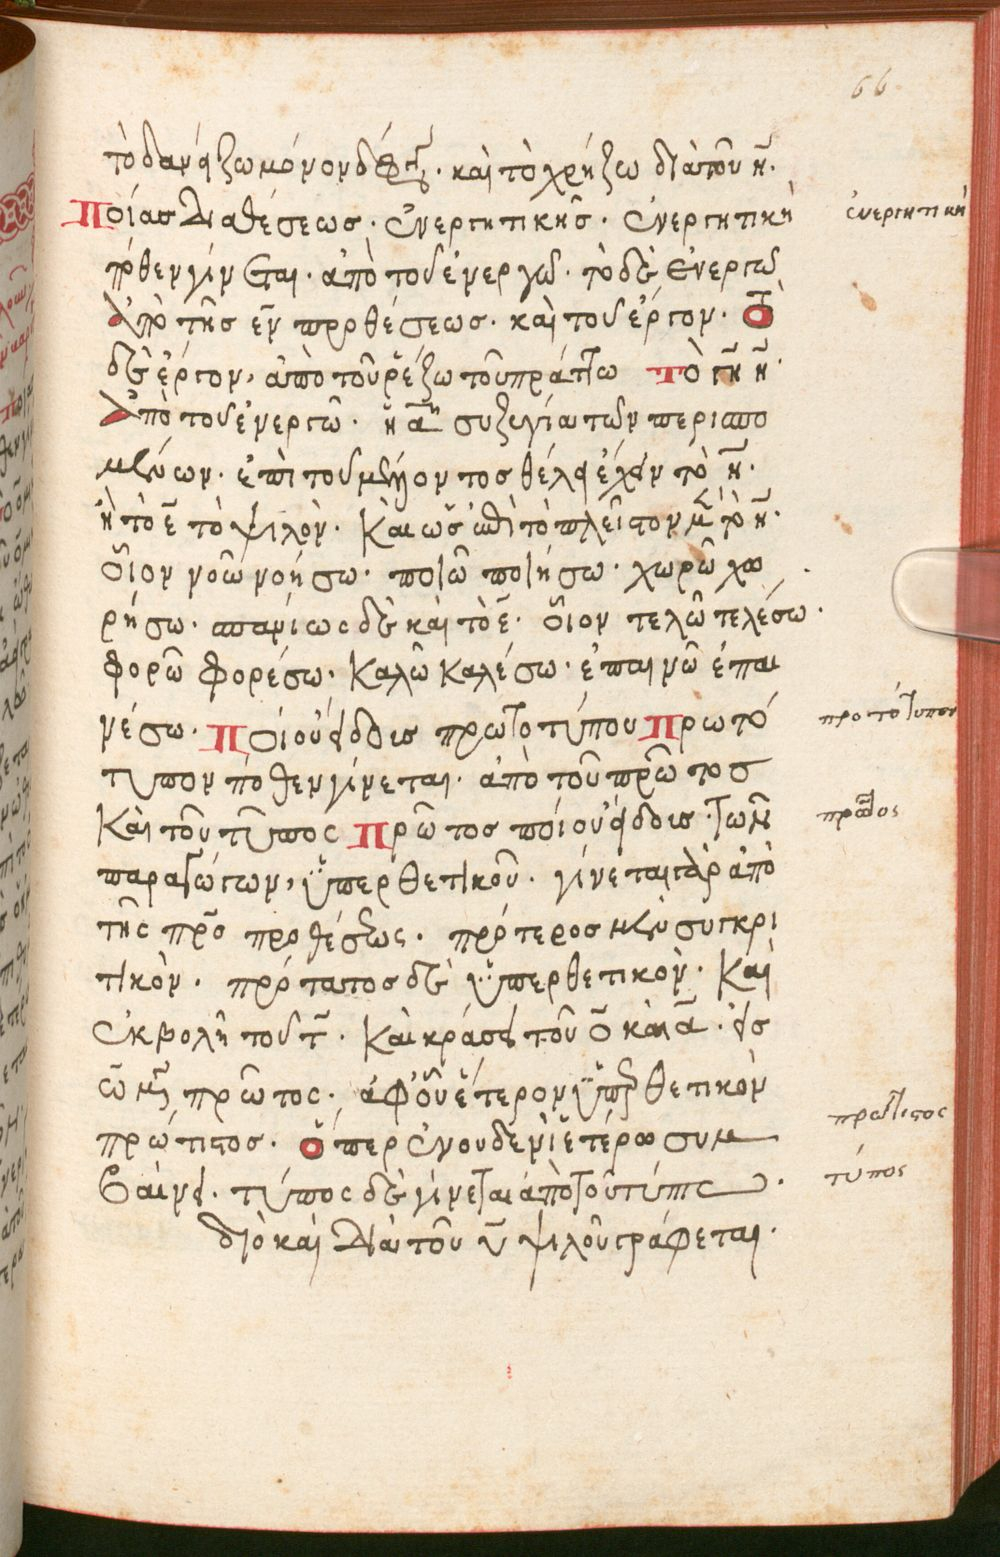 66
τὸ δανείζω μόνον δίφθογγον. καὶ τὸ χρήζω διὰ τοῦ η̄.
Ποίας διαθέσεως. ἐνεργητικῆς. ἐνεργητικὴ
πόθεν γίνεται. ἀπὸ τοῦ ἐνεργῶ. τὸ δὲ ἐνεργῶ
Ἀπὸ τῆς ἐν προθέσεως. καὶ τοῦ ἔργον. Τὸ
δὲ ἔργον, ἀπὸ τοῦ ῥέζω τοῦ πράττω Τὸ γῆ η̄.
Ἀπὸ τοῦ ἐνεργῶ. ἡ ᾱ συζυγία τῶν περισπω
μένων. ἐπὶ τοῦ μέλλοντος θέλει ἔχειν τὸ η̄.
ἢ τὸ ε̄ τὸ ψιλόν. Καὶ ὡς ἐπὶ τὸ πλεῖστον μὲν τὸ η̄.
οἷον νοῶ νοήσω. ποιῶ ποιήσω. χωρῶ χω
ρήσω. σπανίως δὲ καὶ τὸ ε̄. οἷον τελῶ τελέσω.
φορῶ φορέσω. Καλῶ καλέσω. ἐπαινῶ ἐπαι
νέσω. Ποίου εἴδους πρωτοτύπου Πρωτό
τυπον πόθεν γίνεται. ἀπὸ τοῦ πρῶτος
Καὶ τοῦ τύπος Πρῶτος ποίου εἴδους. τῶν
παραγώγων, ὑπερθετικοῦ. γίνεται γὰρ ἀπὸ
τῆς πρὸ προθέσεως. πρότερος μὲν συγκρι
τικόν. πρότατος δὲ ὑπερθετικόν. Καὶ
ἐκβολῇ τοῦ τ̄. Καὶ κράσει τοῦ ο̄ καὶ ᾱ. εἰς
ω̄ μέγα πρῶτος. ἀφ' οὗ ἕτερον ὑπερθετικὸν
πρώτιστος. ὅπερ ἐν οὐδενὶ ἑτέρω συμ
βαίνει. τύπος δὲ γίνεται ἀπὸ τοῦ τύπτω.
διὸ καὶ διὰ τοῦ ῡ ψιλοῦ γράφεται.
ἐνεργητικὴ
πρωτότυπον
πρῶτος
πρώτιστος
τύπος